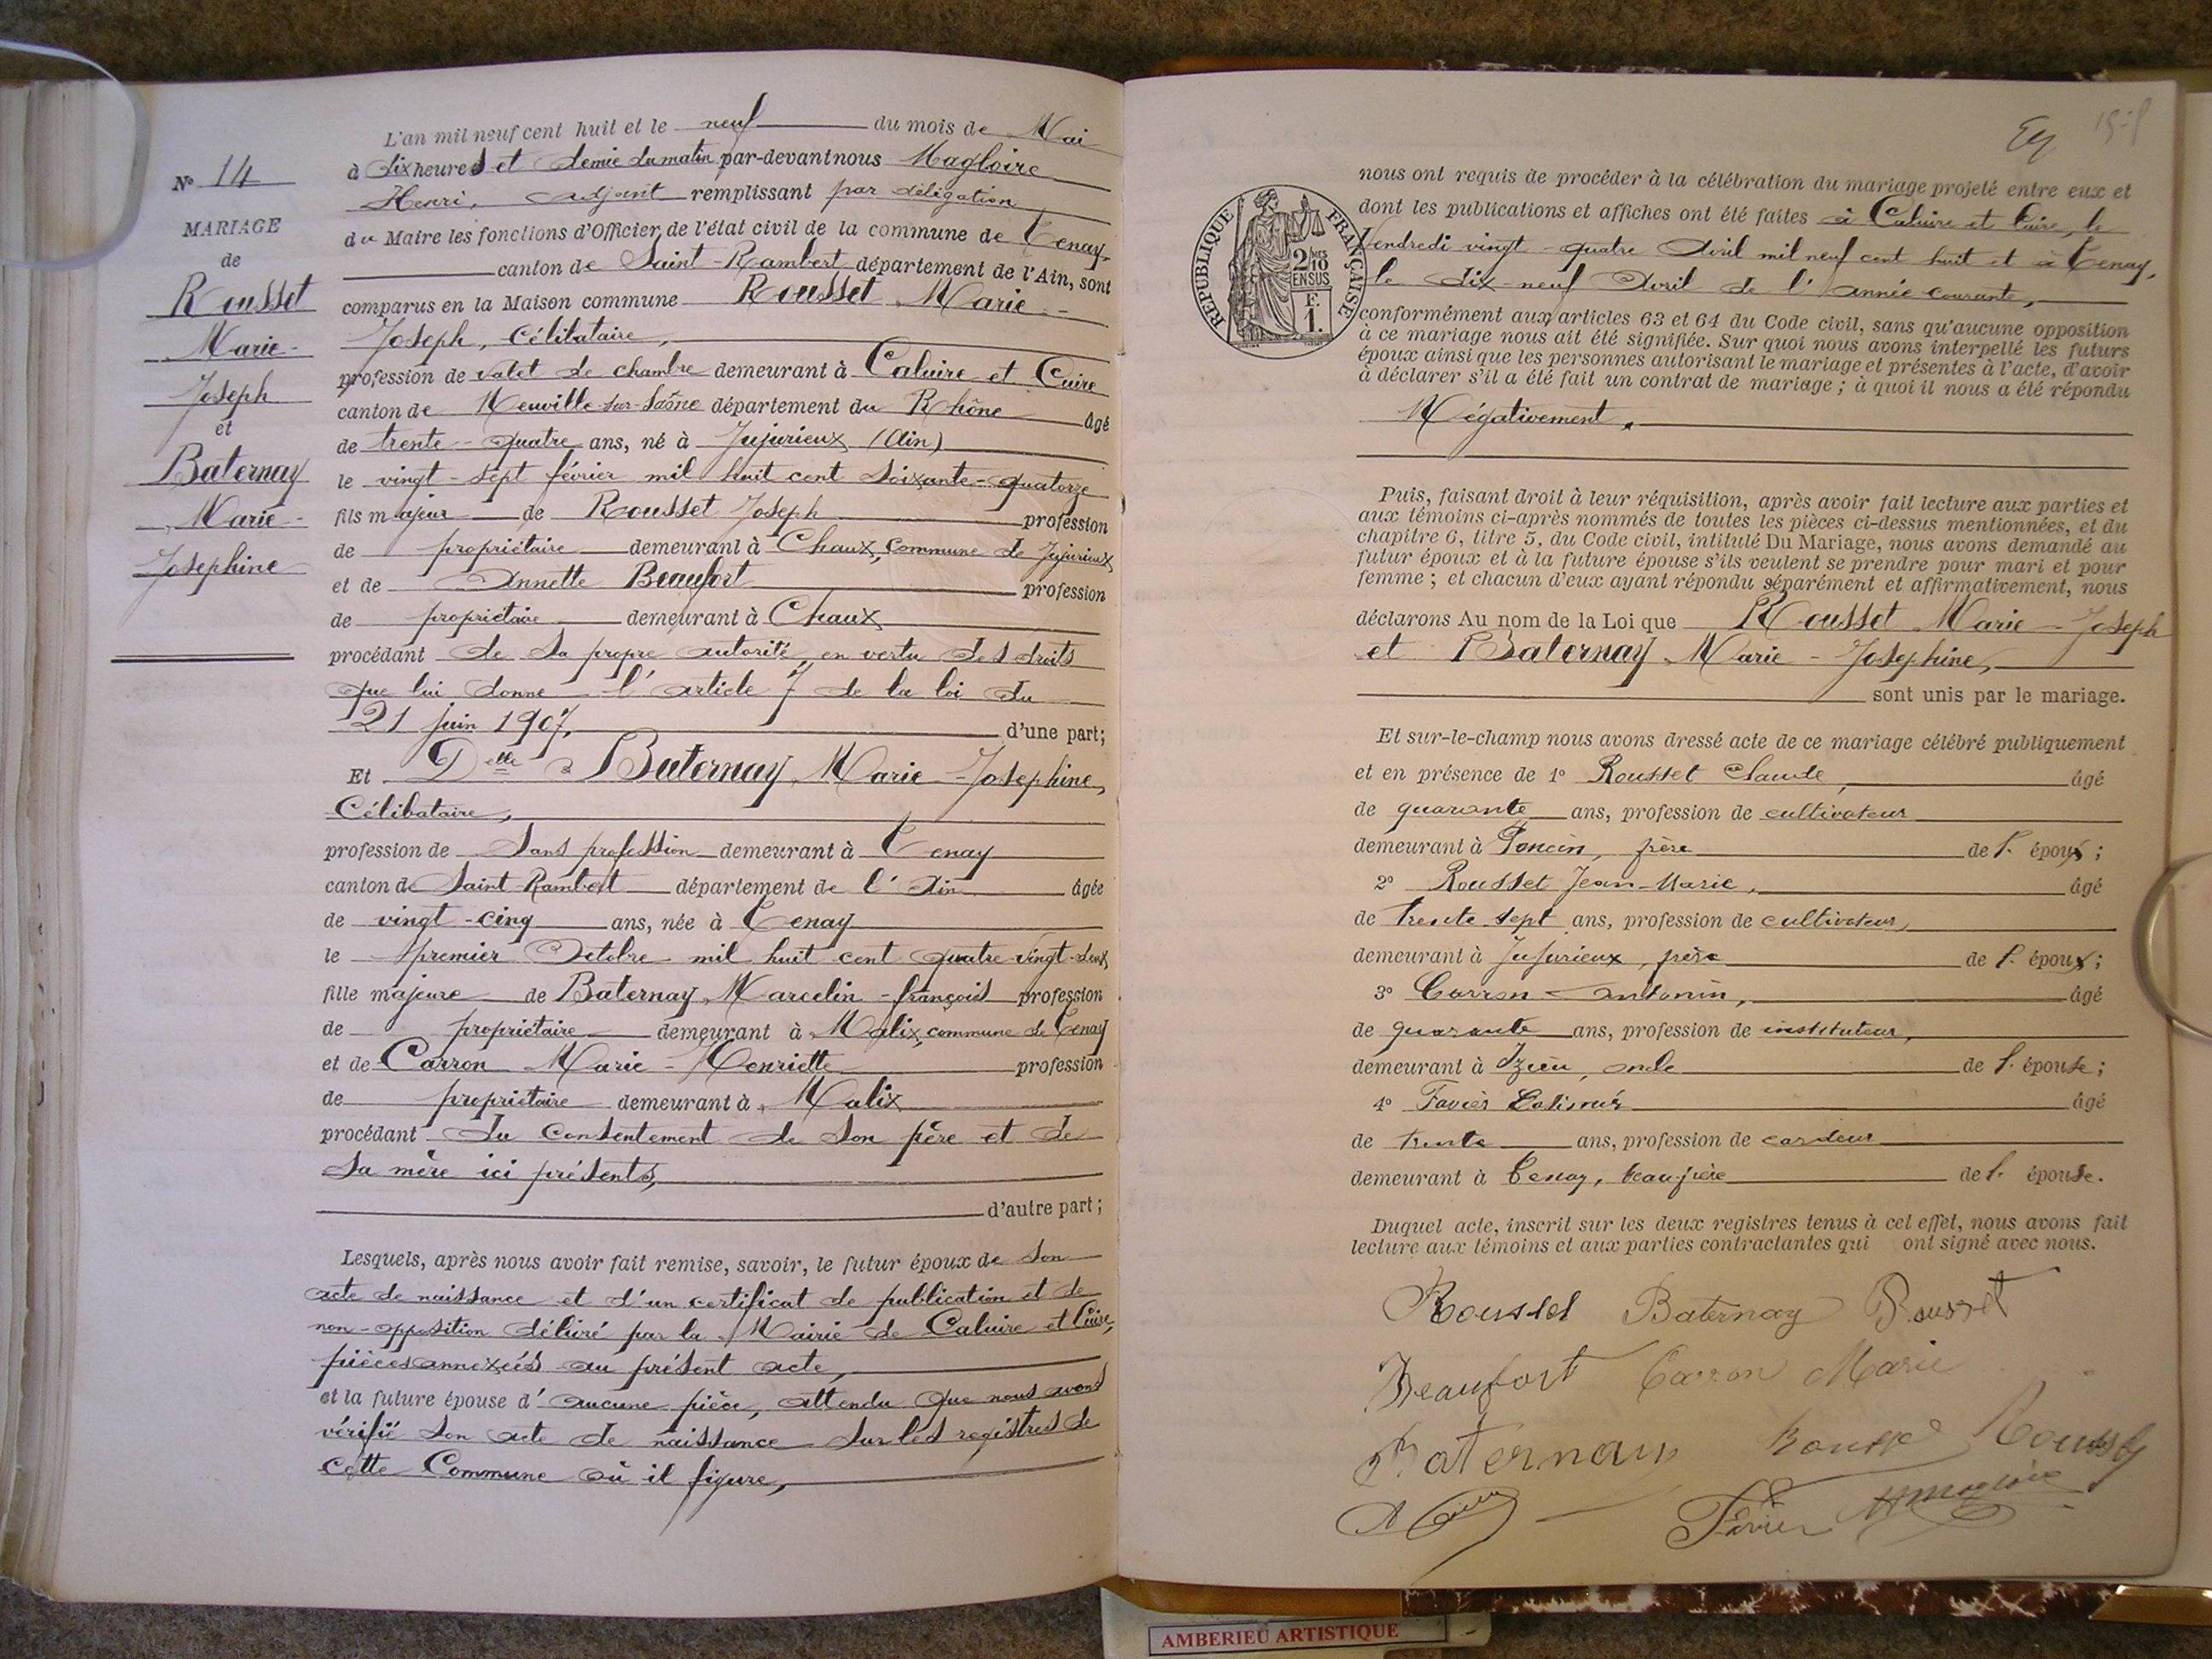 L'an mil neuf cent huit et le neuf du mois de Mai
à dix heures et demie du matin par-devant nous Magloire
Henri, adjoint remplissant par délégation
du Maire les fonctions d'Officier de l'état civil de la commune de Tenay
canton de Saint-Rambert département de l'Ain, sont
comparus en la Maison commune Rousset Marie-
Joseph, célibataire,
profession de valet de chambre demeurant à Caluire et Cuire
canton de Neuville-sur-Saône département du Rhône âgé
de trente-quatre ans, né à Jujurieux (Ain)
le vingt-sept février mil huit cent soixante-quatorze
fils majeur de Rousset Joseph profession
de propriétaire demeurant à Chaux, commune de Jujurieux
et de Annette Beaufort profession
de propriétaire demeurant à Chaux
procédant de sa propre autorité, en vertu des droits
que lui donne l'article 7 de la loi du
21 juin 1907, d'une part;
Et Delle Baternay Marie-Josephine,
Célibataire,
profession de Sans profession demeurant à Tenay
canton de Saint-Rambert département de l'Ain âgée
de vingt-cinq ans, née à Tenay
le premier Octobre mil huit cent quatre-vingt-deux
fille majeure de Baternay Marcelin-françois profession
de propriétaire demeurant à Malix, commune de Tenay
et de Carron Marie-Henriette profession
de propriétaire demeurant à Malix
procédant du consentement de son père et de
sa mère ici présents,
d'autre part;
Lesquels, après nous avoir fait remise, savoir, le futur époux de son
acte de naissance et d'un certificat de publication et de
non-opposition délivré par la Mairie de Caluire et Cuire,
pièces annexées au présent acte,
et la future épouse d'aucune pièce, attendu que nous avons
vérifié son acte de naissance sur les registres de
cette Commune où il figure,
No 14
MARIAGE
de
Rousset
Marie-
Joseph
et
Baternay
Marie-
Josephine
RÉPUBLIQUE FRANÇAISE
2/10
EN SUS
F.
1.
nous ont requis de procéder à la célébration du mariage projeté entre eux et
dont les publications et affiches ont été faites à Caluire et Cuire, le
Vendredi vingt-quatre Avril mil neuf cent huit et à Tenay,
le dix-neuf Avril de l'année courante,
conformément aux articles 63 et 64 du Code civil, sans qu'aucune opposition
à ce mariage nous ait été signifiée. Sur quoi nous avons interpellé les futurs
époux ainsi que les personnes autorisant le mariage et présentes à l'acte, d'avoir
à déclarer s'il a été fait un contrat de mariage; à quoi il nous a été répondu
Négativement.
Puis, faisant droit à leur réquisition, après avoir fait lecture aux parties et
aux témoins ci-après nommés de toutes les pièces ci-dessus mentionnées, et du
chapitre 6, titre 5, du Code civil, intitulé Du Mariage, nous avons demandé au
futur époux et à la future épouse s'ils veulent se prendre pour mari et pour
femme; et chacun d'eux ayant répondu séparément et affirmativement, nous
déclarons Au nom de la Loi que Rousset Marie-Joseph
et Baternay Marie-Josephine,
sont unis par le mariage.
Et sur-le-champ nous avons dressé acte de ce mariage célébré publiquement
et en présence de 1o Rousset Claude, âgé
de quarante ans, profession de cultivateur
demeurant à Poncin, frère de l'époux;
2o Rousset Jean-Marie, âgé
de trente sept ans, profession de cultivateur,
demeurant à Jujurieux, frère de l'époux;
3o Carron Antonin, âgé
de quarante ans, profession de instituteur,
demeurant à Izieu, oncle de l'épouse;
4o Favier Casimir âgé
de trente ans, profession de cardeur
demeurant à Tenay, beau-frère de l'épouse.
Duquel acte, inscrit sur les deux registres tenus à cet effet, nous avons fait
lecture aux témoins et aux parties contractantes qui ont signé avec nous.
Rousset Baternay Rousset
Beaufort Carron Marie
Baternay Rousset Rousset
Favier HMagloire
AMBERIEU ARTISTIQUE